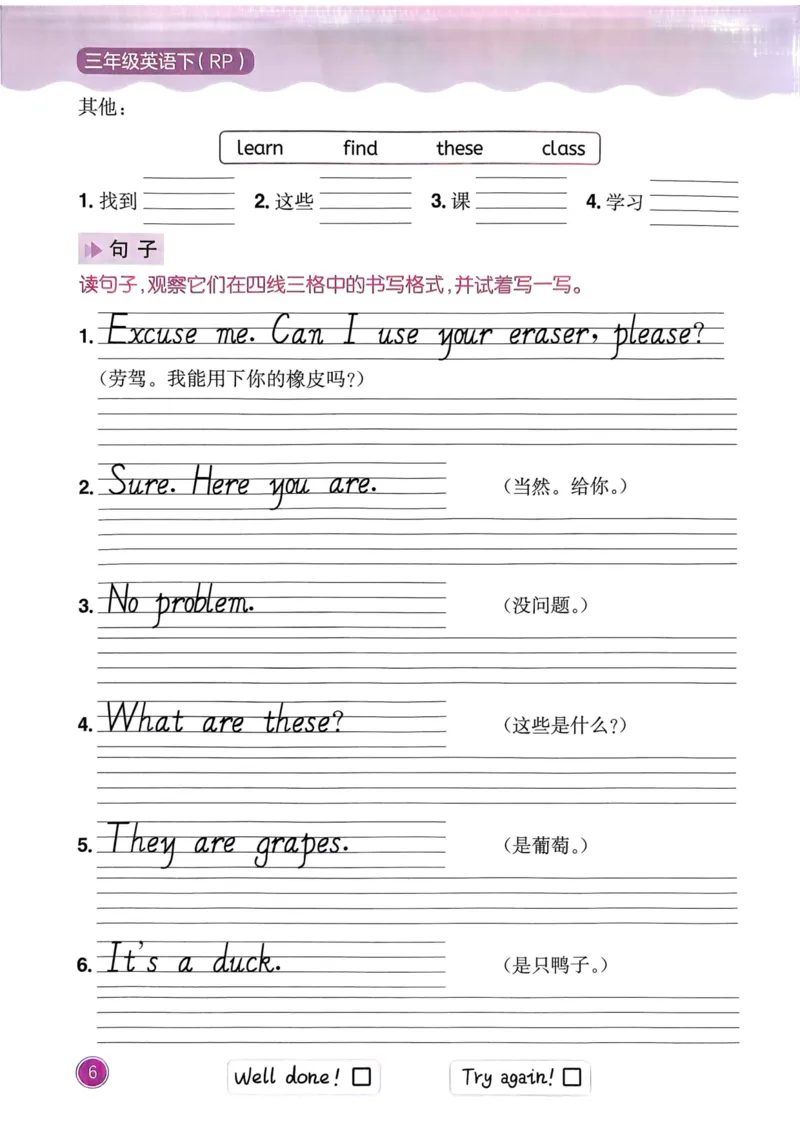 三年级英语下(RP)
其他:
learn find these class
1. 找到 2. 这些 3. 课 4. 学习
句子
读句子,观察它们在四线三格中的书写格式,并试着写一写。
1. Excuse me. Can I use your eraser, please?
(劳驾。我能用下你的橡皮吗?)
2. Sure. Here you are. (当然。给你。)
3. No problem. (没问题。)
4. What are these? (这些是什么?)
5. They are grapes. (是葡萄。)
6. It's a duck. (是只鸭子。)
6 Well done! Try again!